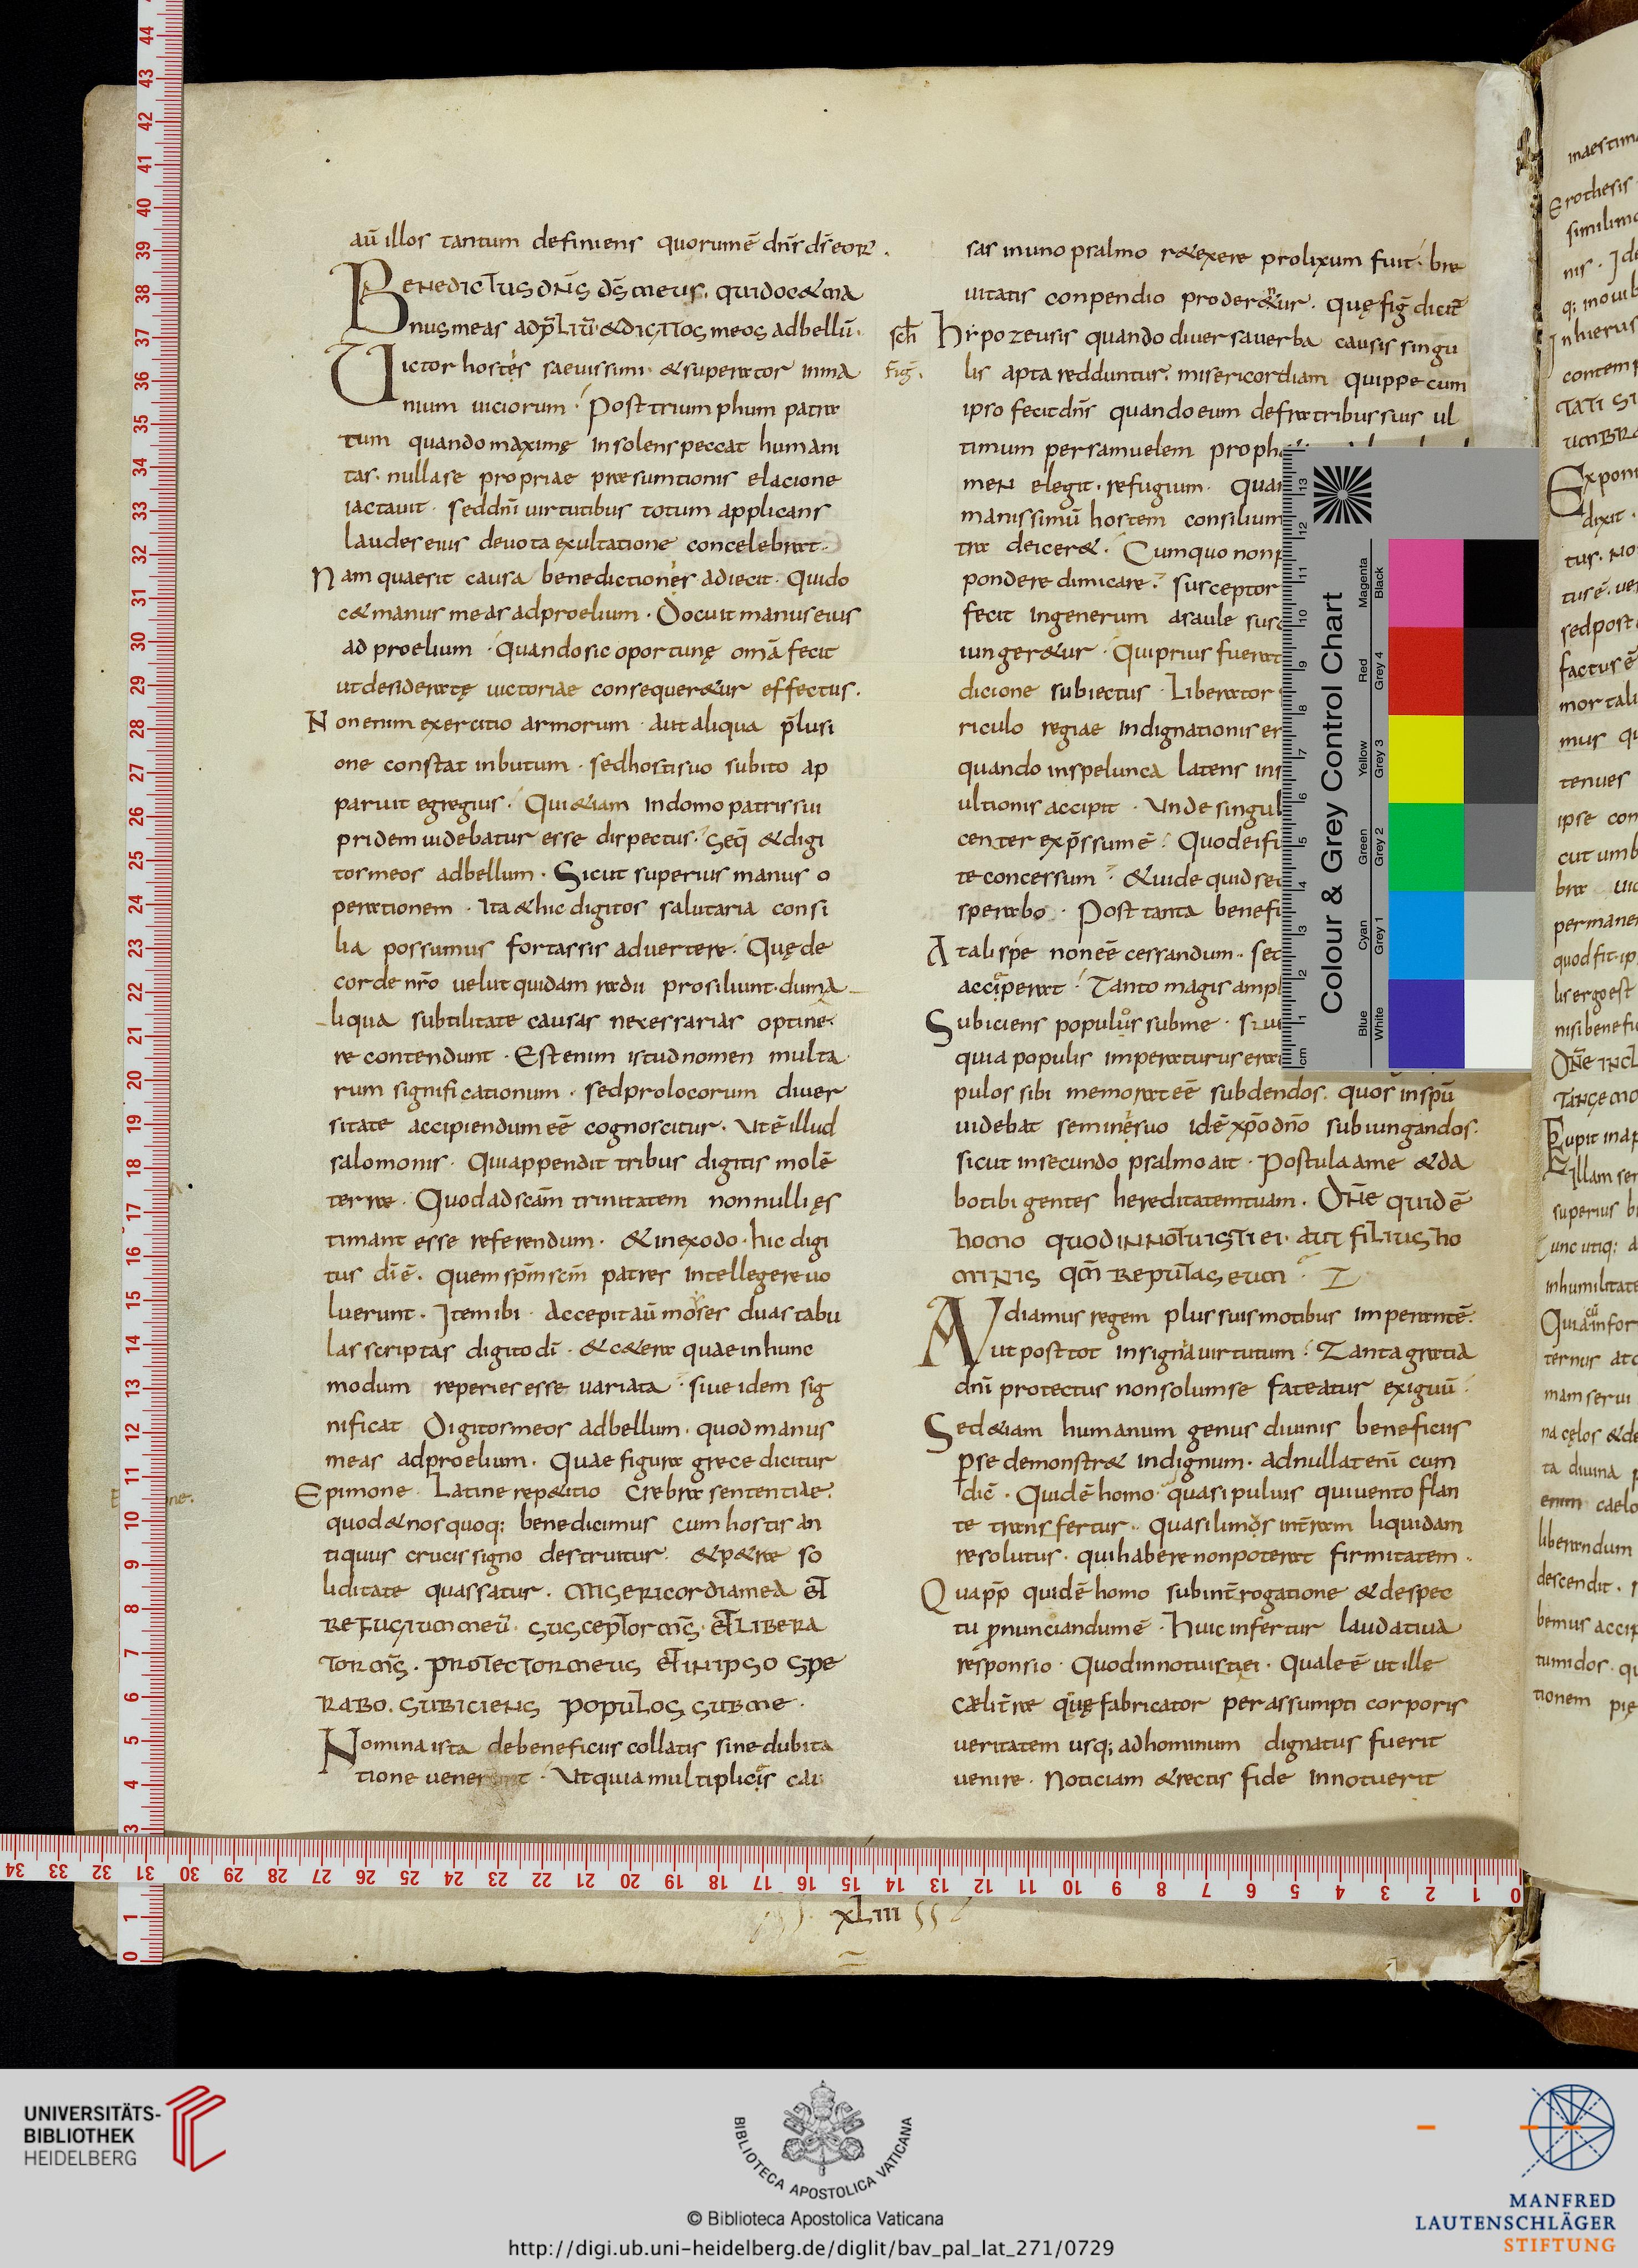 aū illos tantum definiens quorum ē dn̄s ds̄ eor̄.
Benedictus dn̄s ds̄ meus. qui docet ma
nus meas ad pl̄iū. & digitos meos ad bellū.
Uictor hostes saeuissimi. & superator inma
nium uiciorum. Post triumphum patra
tum quando maxime insolens peccat humani
tas. nulla se propriae praesumtionis elacione
iactauit. sed dn̄i uirtutibus totum applicans
laudes eius deuota exultatione concelebrat.
Nam quae sit causa benedictionis adiecit. Qui do
c& manus meas ad proelium. Docuit manus eius
ad proelium. Quando sic oportunę om̄a fecit
ut desideratę uictoriae consequer&ur effectus.
Non enim exercitio armorum. aut aliqua p̄lusi
one constat inbutum. sed hosti suo subito ap
paruit egregius. Qui &iam in domo patris sui
pridem uidebatur esse dispectus. Seq̄ & digi
tos meos ad bellum. Sicut superius manus o
perationem. Ita & hic digitos salutaria consi
lia possumus fortassis aduertere. Quę de
corde nr̄o uelut quidam radii prosiliunt. dum a
liqua subtilitate causas necessarias optine
re contendunt. Est enim istud nomen multa
rum significationum. sed pro locorum diuer
sitate accipiendum eē cognoscitur. Ut ē illud
salomonis. Qui appendit tribus digitis molē
terrae. Quod ad scām trinitatem nonnulli ęs
timant esse referendum. & in exodo. hic digi
tus dī ē. quem sp̄m scm̄ patres intellegere uo
luerunt. Item ibi. accepit aū moses duas tabu
las scriptas digito dī. & c&era quae in hunc
modum reperies esse uariata. siue idem sig
nificat Digitos meos ad bellum. quod manus
meas ad proelium. Quae figura grece dicitur
Epimone. Latine rep&itio crebrae sententiae.
quod & nos quoq; benedicimus cum hostis an
tiquus crucis signo destruitur. & p&rae so
liditate quassatur. Misericordia mea et
refugium meū. susceptor ms̄. et libera
tor ms̄. protector meus et in ipso spe
rabo. subiciens populos sub me.
Nomina ista de beneficiis collatis sine dubita
tione uenerunt. Ut quia multiplicis cau
sas in uno psalmo r&exere prolixum fuit. bre
uitatis conpendio proderentur. Quę fiḡ dicit̄
sch̄
fig.
Hirpozeusis quando diuersa uerba causis singu
lis apta redduntur. misericordiam quippe cum
ipso fecit dn̄s quando eum de fratribus suis ul
timum per samuelem proph
men elegit. refugium. Quan
manissimū hostem consilium
trae deicer&. Cum quo non p
pondere dimicare. susceptor
fecit in generum a saule susc
iunger&ur. Qui prius fuerat
dicione subiectus. Liberator
riculo regiae indignationis er
quando in spelunca latens ins
ultionis accipit. Unde singul
center exp̄ssum ē. Quod ei fi
te concessum. & uide quid se
sperabo. Post tanta benefi
A tali spe non eē cessandum. set
acciperat. Tanto magis ampl
Subiciens populos sub me. siue
quia populis imperaturus era
pulos sibi memorat eē subdendos. quos in spū
uidebat semine suo idē xp̄o dn̄o subiungandos.
sicut in secundo psalmo ait. Postula a me & da
bo tibi gentes hereditatem tuam. Dn̄e quid ē
homo quod innotuisti ei. aut filius ho
minis qm̄ reputas eum.
Audiamus regem plus suis motibus imperantē.
Ut post tot insignia uirtutum. Tanta gratia
dn̄i protectus non solum se fateatur exiguū.
Sed &iam humanum genus diuinis beneficiis
p̄se demonstr& indignum. ad nullaten̄ cum
dic̄. Quid ē homo quasi puluis qui uento flan
te transfertur. Quasi limos int̄ ream liquidam
resolutus. qui habere non poterat firmitatem.
Quapp̄ quid ē homo sub int̄rogatione & despec
tu pronunciandum ē. Huic infertur laudatiua
responsio. Quod innotuisti ei. Quale ē ut ille
caeli t̄rae quę fabricator per assumpti corporis
ueritatem usq; ad hominum dignatus fuerit
uenire. Noticiam & rectis fide innotuerit
xLiii
Colour & Grey Control Chart
Magenta
Black
Red
Grey 4
Yellow
Grey 3
Green
Grey 2
Cyan
Grey 1
Blue
White
cm
UNIVERSITÄTS-
BIBLIOTHEK
HEIDELBERG
BIBLIOTECA APOSTOLICA VATICANA
© Biblioteca Apostolica Vaticana
http://digi.ub.uni-heidelberg.de/diglit/bav_pal_lat_271/0729
MANFRED
LAUTENSCHLÄGER
STIFTUNG